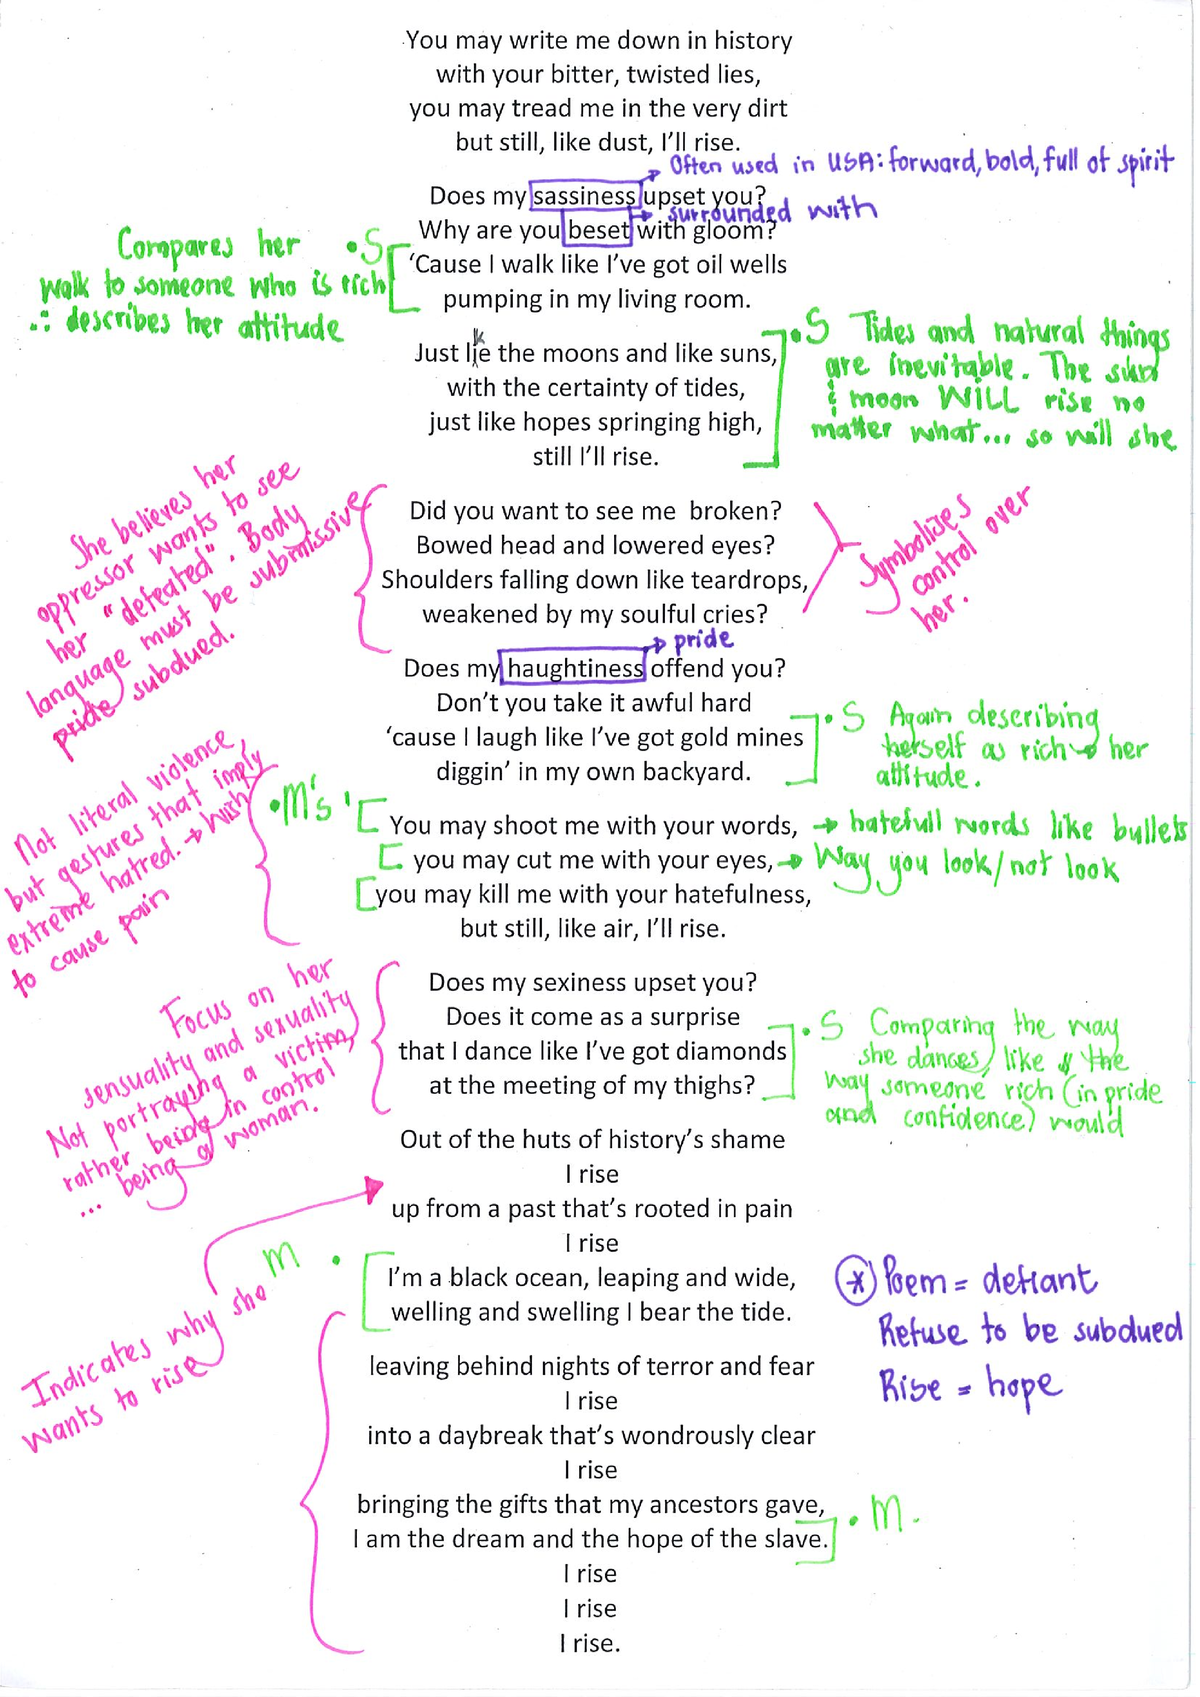 You may write me down in history
with your bitter, twisted lies,
you may tread me in the very dirt
but still, like dust, I'll rise.
Often used in USA: forward, bold, full of spirit
Does my sassiness upset you?
surrounded with
Why are you beset with gloom?
'Cause I walk like I've got oil wells
pumping in my living room.
• S
Compares her
walk to someone who is rich
∴ describes her attitude
k
Just lie the moons and like suns,
with the certainty of tides,
just like hopes springing high,
still I'll rise.
• S Tides and natural things
are inevitable. The sun
& moon WILL rise no
matter what... so will she
Did you want to see me broken?
Bowed head and lowered eyes?
Shoulders falling down like teardrops,
weakened by my soulful cries?
She believes her
oppressor wants to see
her "defeated". Body
language must be submissive
pride subdued.
Symbolizes
control over
her.
pride
Does my haughtiness offend you?
Don't you take it awful hard
'cause I laugh like I've got gold mines
diggin' in my own backyard.
• S Again describing
herself as rich → her
attitude.
• M's
You may shoot me with your words, → hatefull words like bullets
you may cut me with your eyes, → Way you look/not look
you may kill me with your hatefulness,
but still, like air, I'll rise.
Not literal violence,
but gestures that imply
extreme hatred. → Wish
to cause pain
Does my sexiness upset you?
Does it come as a surprise
that I dance like I've got diamonds
at the meeting of my thighs?
Focus on her
sensuality and sexuality
Not portraying a victim,
rather being in control
... being a woman.
• S Comparing the way
she dances, like the
way someone rich (in pride
and confidence) would
Out of the huts of history's shame
I rise
up from a past that's rooted in pain
I rise
M •
I'm a black ocean, leaping and wide,
welling and swelling I bear the tide.
Indicates why she
wants to rise
* Poem = defiant
Refuse to be subdued
Rise = hope
leaving behind nights of terror and fear
I rise
into a daybreak that's wondrously clear
I rise
bringing the gifts that my ancestors gave,
I am the dream and the hope of the slave.
• M.
I rise
I rise
I rise.